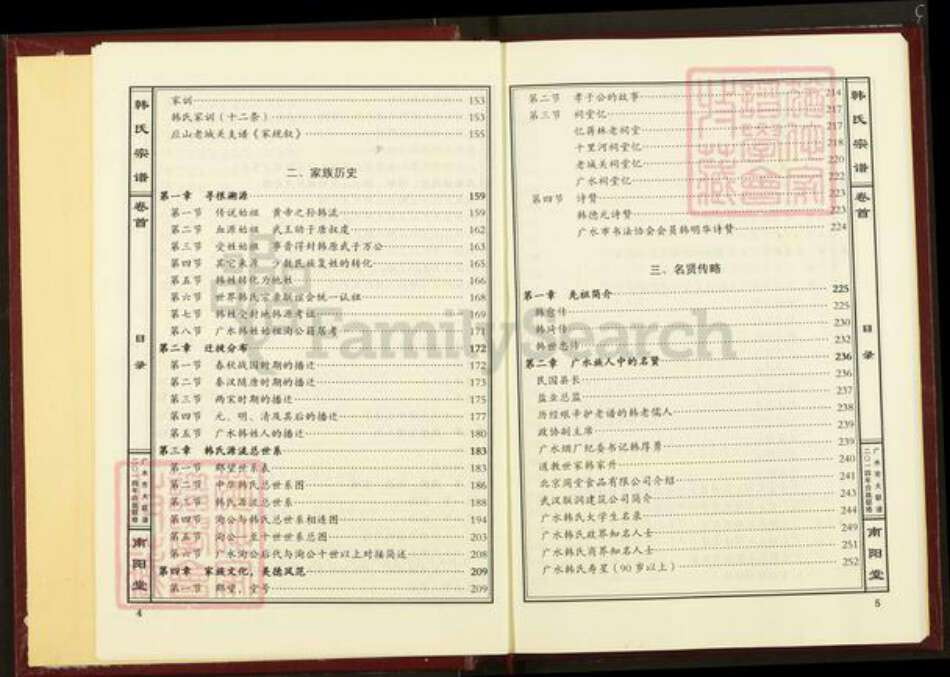 韩氏宗谱
卷首
目录
南阳堂
家训 153
韩氏家训（十二条） 153
应山老城关支谱《家规叙》 155
二、家族历史
第一章 寻根溯源 159
第一节 传说始祖 黄帝之孙韩流 159
第二节 血源始祖 武王的子唐叔虞 162
第三节 受姓始祖 事晋得封韩原武子万公 163
第四节 其它来源 少数民族复姓的转化 165
第五节 韩姓转化为他姓 166
第六节 世界韩氏宗亲联谊会统一认祖 168
第七节 韩姓受封地韩源考证 169
第八节 广水韩姓始祖洵公籍居考 171
第二章 迁徙分布 172
第一节 春秋战国时期的播迁 172
第二节 秦汉隋唐时期的播迁 173
第三节 两宋时期的播迁 175
第四节 元、明、清及其后的播迁 177
第五节 广水韩姓人的播迁 180
第三章 韩氏源流总世系 183
第一节 郡望世系表 183
第二节 中华韩氏总世系图 186
第三节 韩氏源流总世系 188
第四节 洵公与韩氏总世系相连图 194
第五节 洵公一至十世世系总图 203
第六节 广水洵公后代与洵公十世以上对接简述 208
第四章 家族文化，美德风范 209
第一节 郡望，堂号 209
4
第二节 孝子公的故事 214
第三节 祠堂忆 217
忆蒋林老祠堂 217
十里河祠堂忆 218
老城关祠堂忆 220
广水祠堂忆 222
第四节 诗赞 223
韩德元诗赞 223
广水市书法协会会员韩明华诗赞 224
三、名贤传略
第一章 先祖简介 225
韩愈传 225
韩琦传 230
韩世忠传 232
第二章 广水族人中的名贤 236
民国县长 236
盐业总监 237
历经艰辛护老谱的韩老儒人 238
政协副主席 239
广水烟厂纪委书记韩厚勇 239
道教世家韩家丹 240
北京同堂食品有限公司介绍 241
武汉联润建筑公司简介 243
广水韩氏大学生名录 244
广水韩氏政界知名人士 249
广水韩氏商界知名人士 251
广水韩氏寿星（90岁以上） 252
韩氏宗谱
卷首
目录
南阳堂
5
FamilySearch